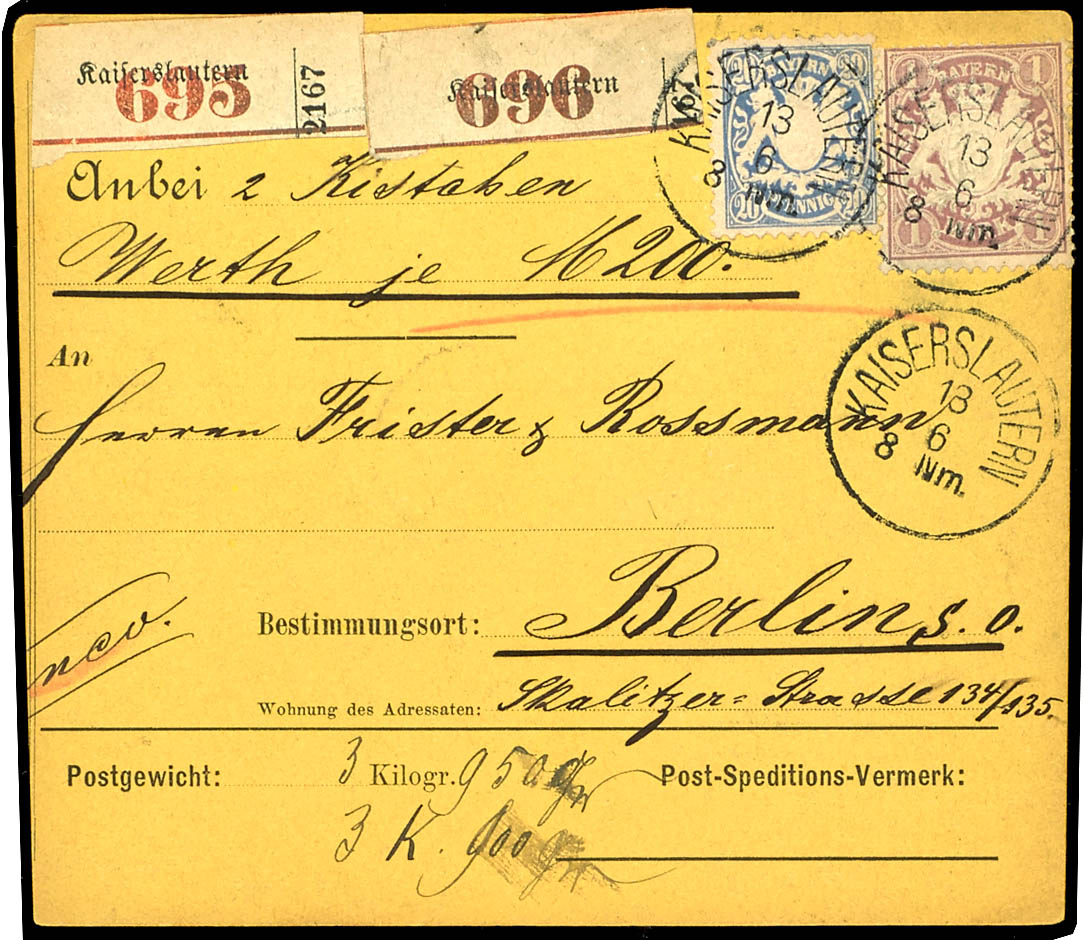 Kaiserslautern
695
2167
Kaiserslautern
696
167
BAYERN
20
PFENNIG
20
BAYERN
1
1
KAISERSLAUTERN
13
6
8 Nm.
KAISERSLAUTERN
13
6
8 Nm.
Anbei 2 Kistchen
Werth je M 200.
An
Herren Frister & Rossmann
KAISERSLAUTERN
13
6
8 Nm.
Bestimmungsort: Berlin s. o.
Wohnung des Adressaten: Skalitzer-Strasse 134/135.
Postgewicht: 3 Kilogr. 950 gr
Post-Speditions-Vermerk:
3 K. 900 gr